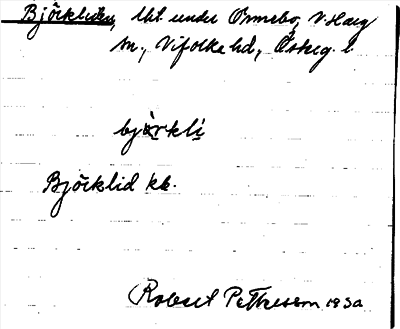 Björkliden, lht. under Ormebo, V. Harg
sn., Vifolka hd., Östерg. l.
bjärkli
Björklid kb.
Robert Pettersson 1930